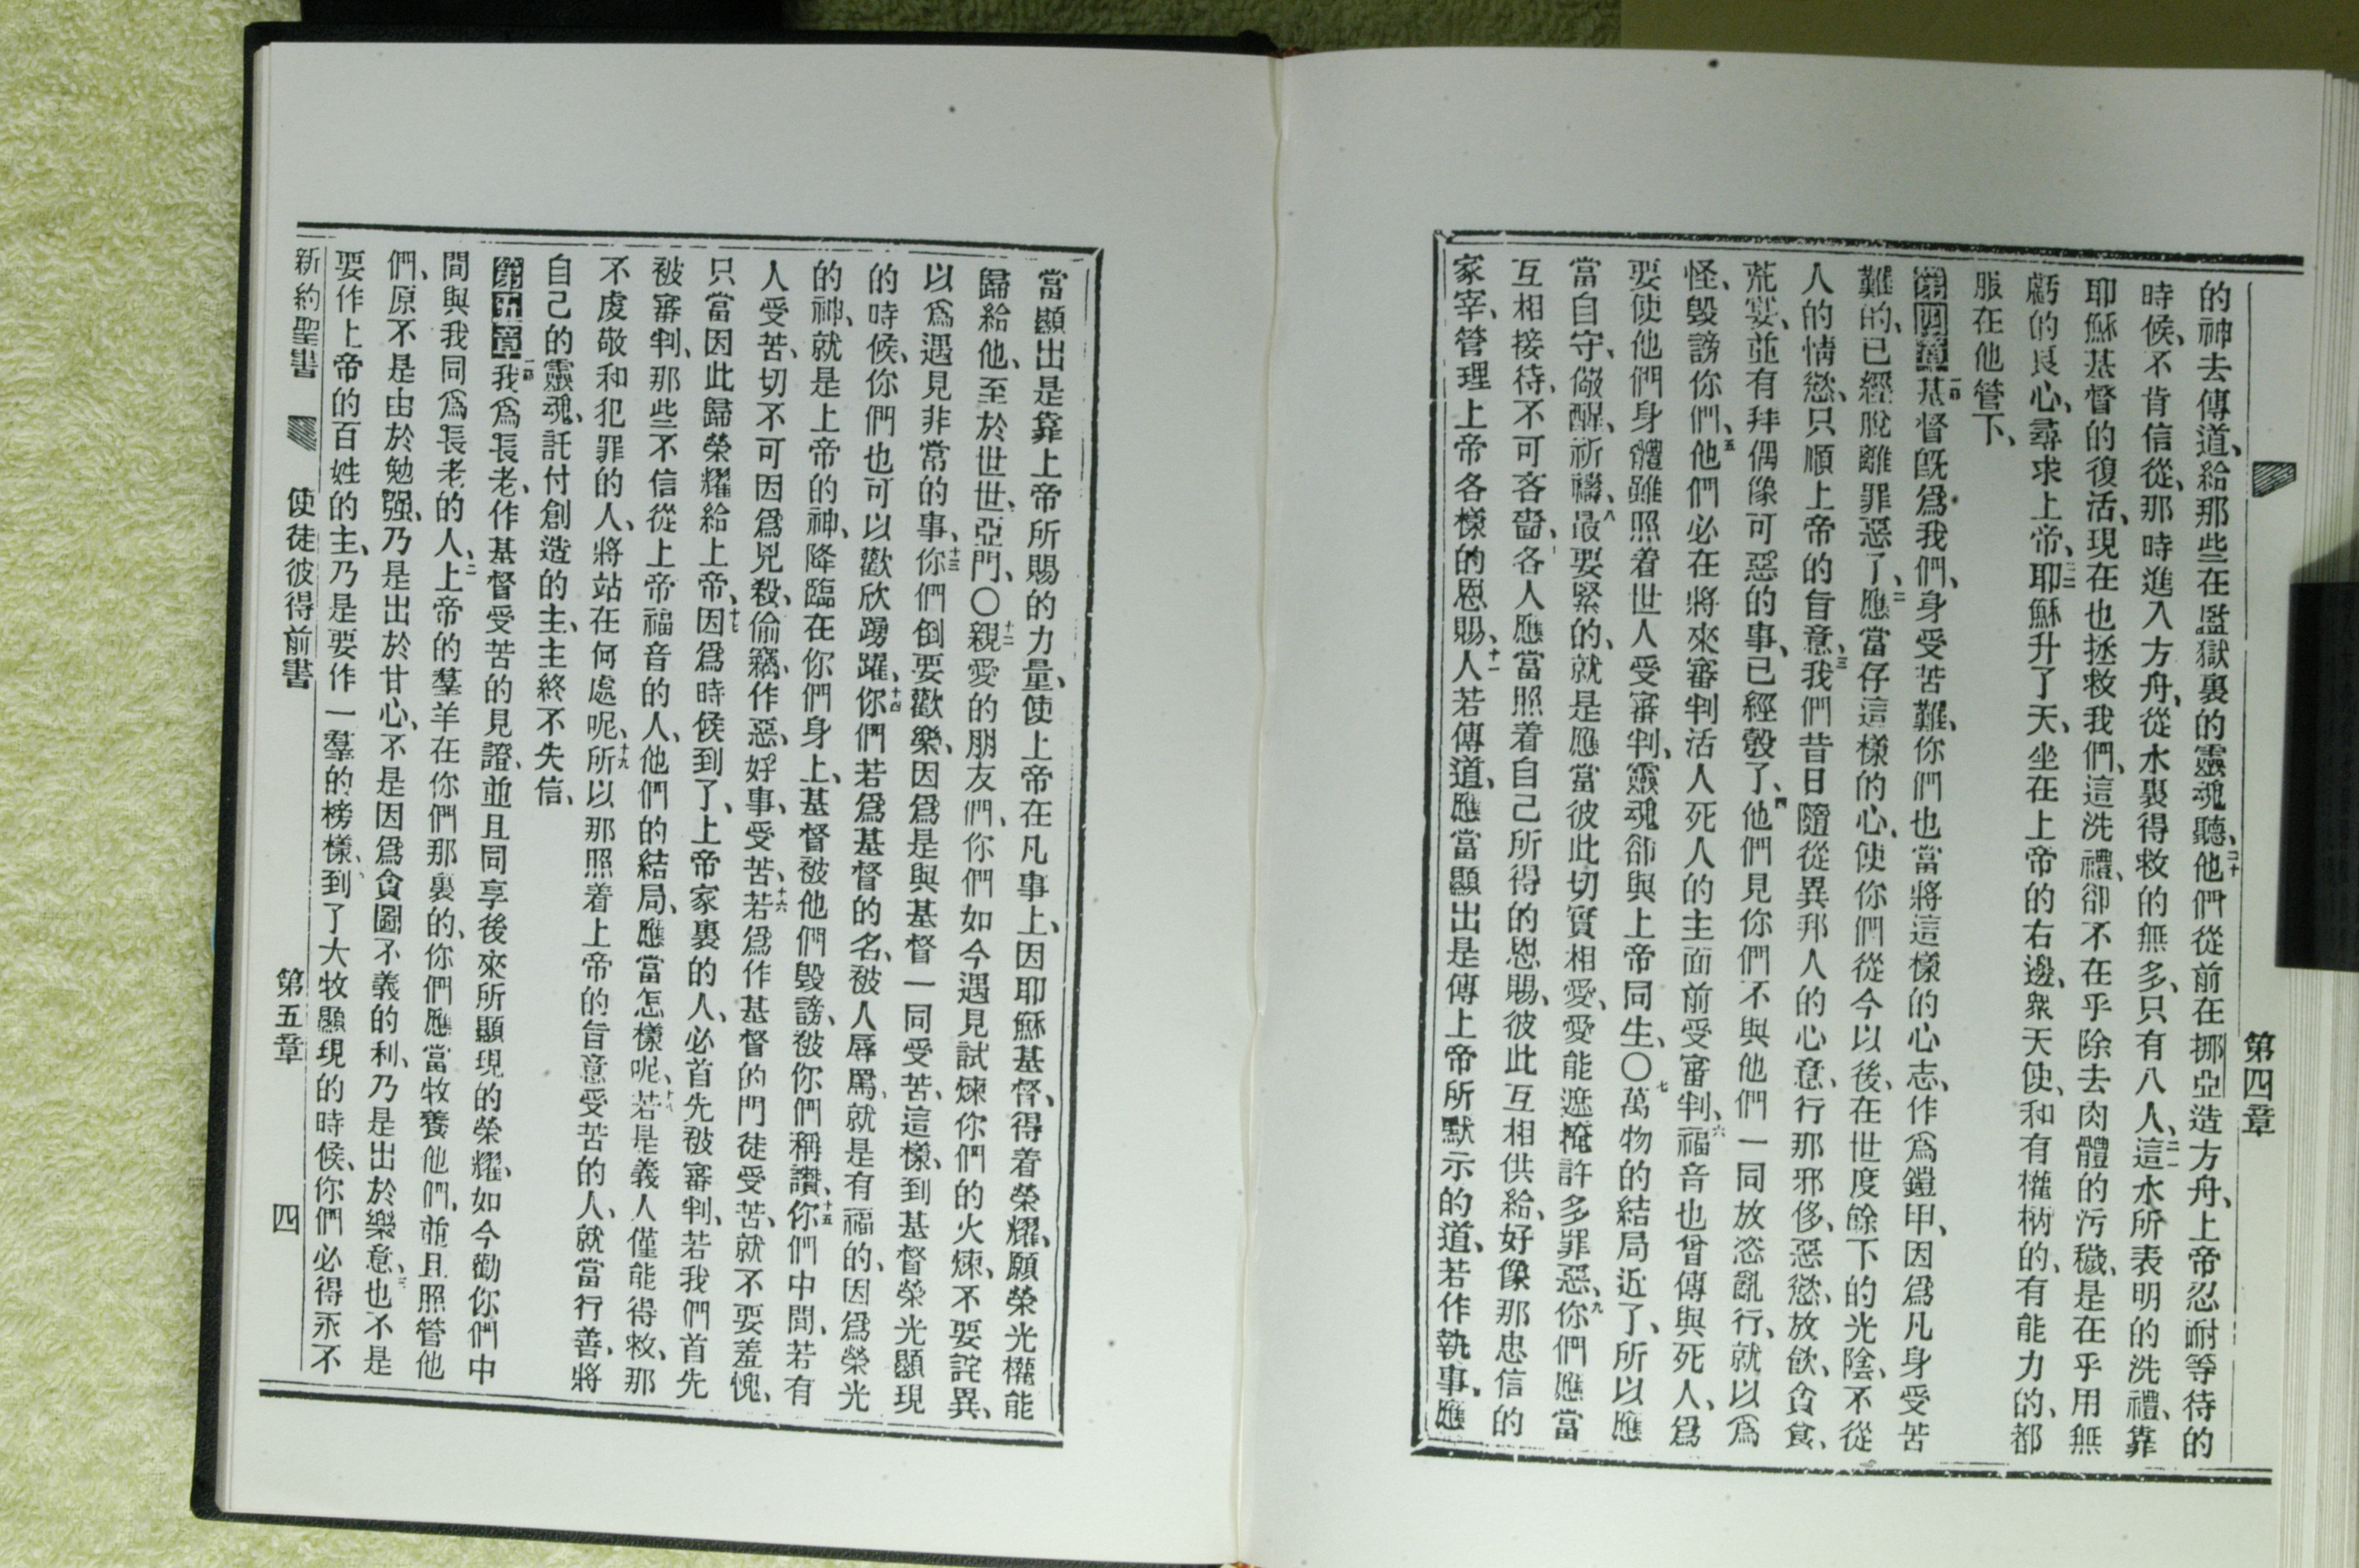 第四章
的神去傳道、給那些在監獄裏的靈魂聽、二十他們從前在挪亞造方舟、上帝忍耐等待的
時候、不肯信從、那時進入方舟、從水裏得救的無多、只有八人、二一這水所表明的洗禮、靠
耶穌基督的復活、現在也拯救我們、這洗禮、卻不在乎除去肉體的污穢、是在乎用無
虧的良心、尋求上帝、二二耶穌升了天、坐在上帝的右邊、衆天使、和有權柄的、有能力的、都
服在他管下、
第四章一節基督旣爲我們、身受苦難、你們也當將這樣的心志、作爲鎧甲、因爲凡身受苦
難的、已經脫離罪惡了、二應當存這樣的心、使你們從今以後、在世度餘下的光陰、不從
人的情慾、只順上帝的旨意、三我們昔日隨從異邦人的心意、行那邪侈、惡慾、放飲、貪食、
荒宴、並有拜偶像可惡的事、已經彀了、四他們見你們不與他們一同放恣亂行、就以爲
怪、毀謗你們、五他們必在將來審判活人死人的主面前受審判、六福音也曾傳與死人、爲
要使他們身體雖照着世人受審判、靈魂卻與上帝同生、〇七萬物的結局近了、所以應
當自守、儆醒、祈禱、八最要緊的、就是應當彼此切實相愛、愛能遮掩許多罪惡、九你們應當
互相接待、不可吝嗇、各人應當照着自己所得的恩賜、彼此互相供給、好像那忠信的
家宰、管理上帝各樣的恩賜、十一人若傳道、應當顯出是傳上帝所默示的道、若作執事、應
當顯出是靠上帝所賜的力量、使上帝在凡事上、因耶穌基督、得着榮耀、願榮光權能
歸給他、至於世世、亞門、〇十二親愛的朋友們、你們如今遇見試煉你們的火煉、不要詫異、
以爲遇見非常的事、十三你們倒要歡樂、因爲是與基督一同受苦、這樣、到基督榮光顯現
的時候、你們也可以歡欣踴躍、十四你們若爲基督的名、被人辱罵、就是有福的、因爲榮光
的神、就是上帝的神、降臨在你們身上、基督被他們毀謗、被你們稱讚、十五你們中間、若有
人受苦、切不可因爲兇殺、偷竊、作惡、好事、受苦、十六若爲作基督的門徒受苦、就不要羞愧、
只當因此歸榮耀給上帝、十七因爲時候到了、上帝家裏的人、必首先被審判、若我們首先
被審判、那些不信從上帝福音的人、他們的結局、應當怎樣呢、十八若是義人僅能得救、那
不虔敬和犯罪的人、將站在何處呢、十九所以那照着上帝的旨意受苦的人、就當行善、將
自己的靈魂、託付創造的主、主終不失信、
第五章一節我爲長老、作基督受苦的見證、並且同享後來所顯現的榮耀、如今勸你們中
間與我同爲長老的人、二上帝的羣羊在你們那裏的、你們應當牧養他們、並且照管他
們、原不是由於勉强、乃是出於甘心、不是因爲貪圖不義的利、乃是出於樂意、三也不是
要作上帝的百姓的主、乃是要作一羣的榜樣、到了大牧顯現的時候、你們必得永不
新約聖書 使徒彼得前書 第五章 四